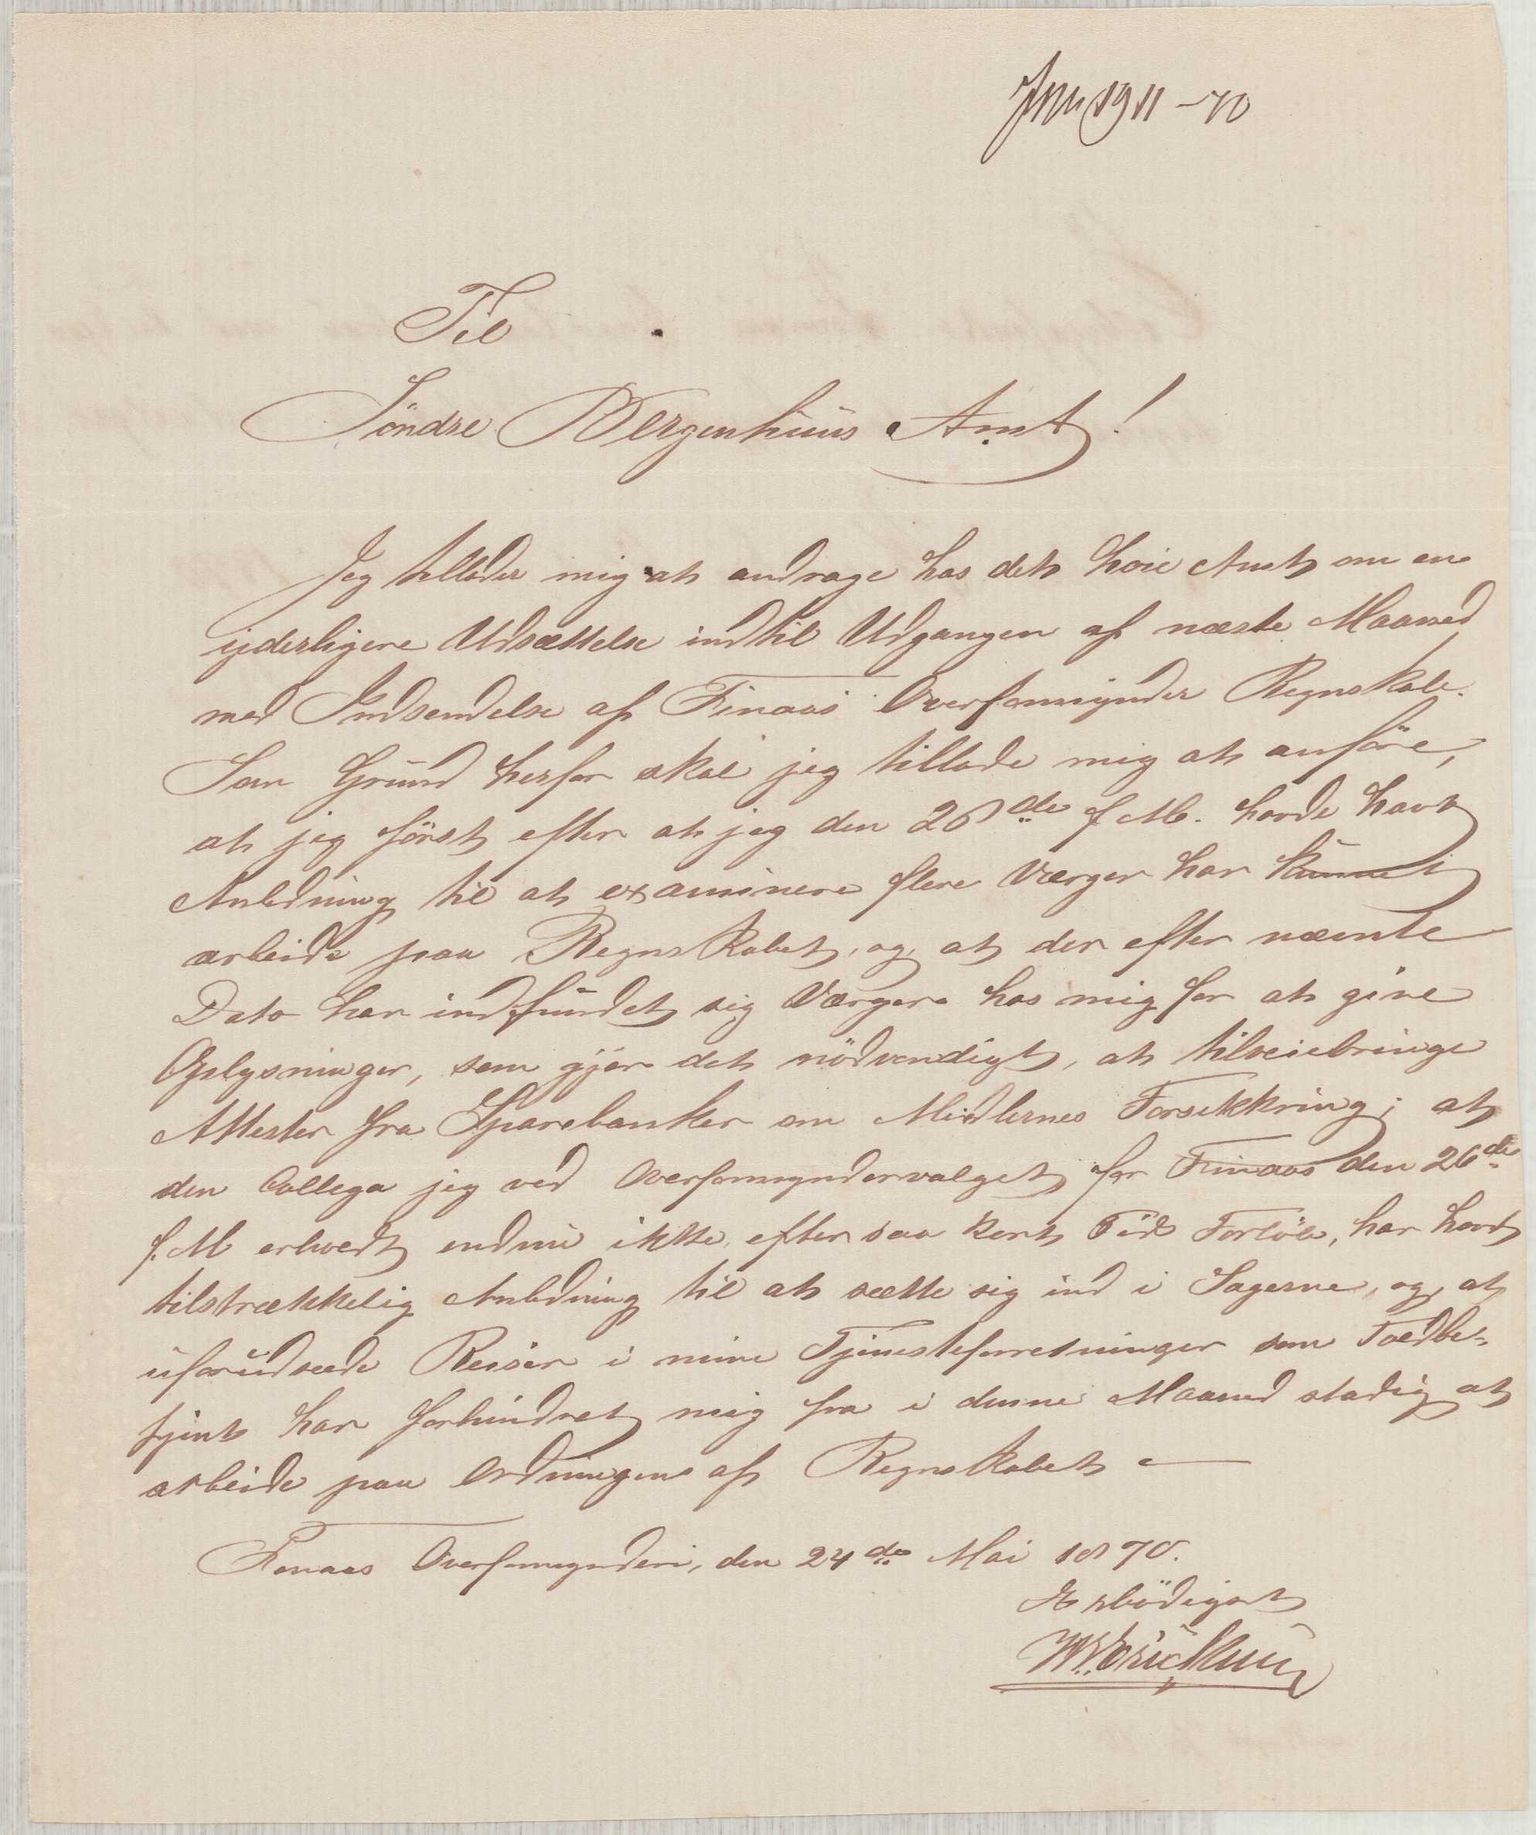 JNr 1911-70
Til
Söndre Bergenhuus Amt!
Jeg tillader mig at andrage hos det høie Amt om en
yderligere Udsættelse indtil Udgangen af næste Maaned
med Indsendelse af Finaas Overformynder Regnskab.
Som Grund herfor skal jeg tillade mig at anföre,
at jeg först efter at jeg den 26de f. M. havde havt
Anledning til at examinere flere Værger har kunnet
arbeide paa Regnskabet, og at der efter nævnte
Dato har indfundet sig Værger hos mig for at give
Oplysninger, som gjör det nödvendigt, at tilveiebringe
Attester fra Sparebanker om Midlernes Forsikkring; at
den Collega jeg ved Overformyndervalget for Finaas den 26de
f. M erhvedt endnu ikke, efter saa kort Tids Forlöb, har havt
tilstrækkelig Anledning til at sætte sig ind i Sagerne, og, at
uforudseede Reiser i mine Tjenesteforretninger som Toldbe-
tjent har forhindret mig fra i denne Maaned stadig at
arbeide paa Ordningens af Regnskabet
Finaas Overformynderi, den 24de Mai 1870.
Erbödigst